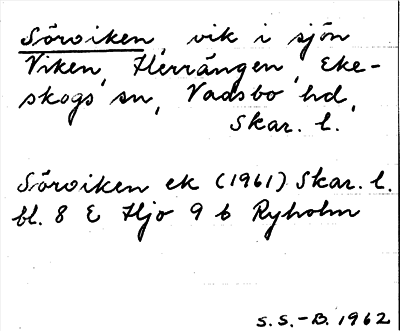 Sörviken, vik i sjön
Viken, Herrängen, Eke-
skogs sn, Vadsbo hd,
Skar. l.
Sörviken ek (1961) Skar. l.
bl. 8 E Hjo 9 b Ryholm
S.S.-B. 1962